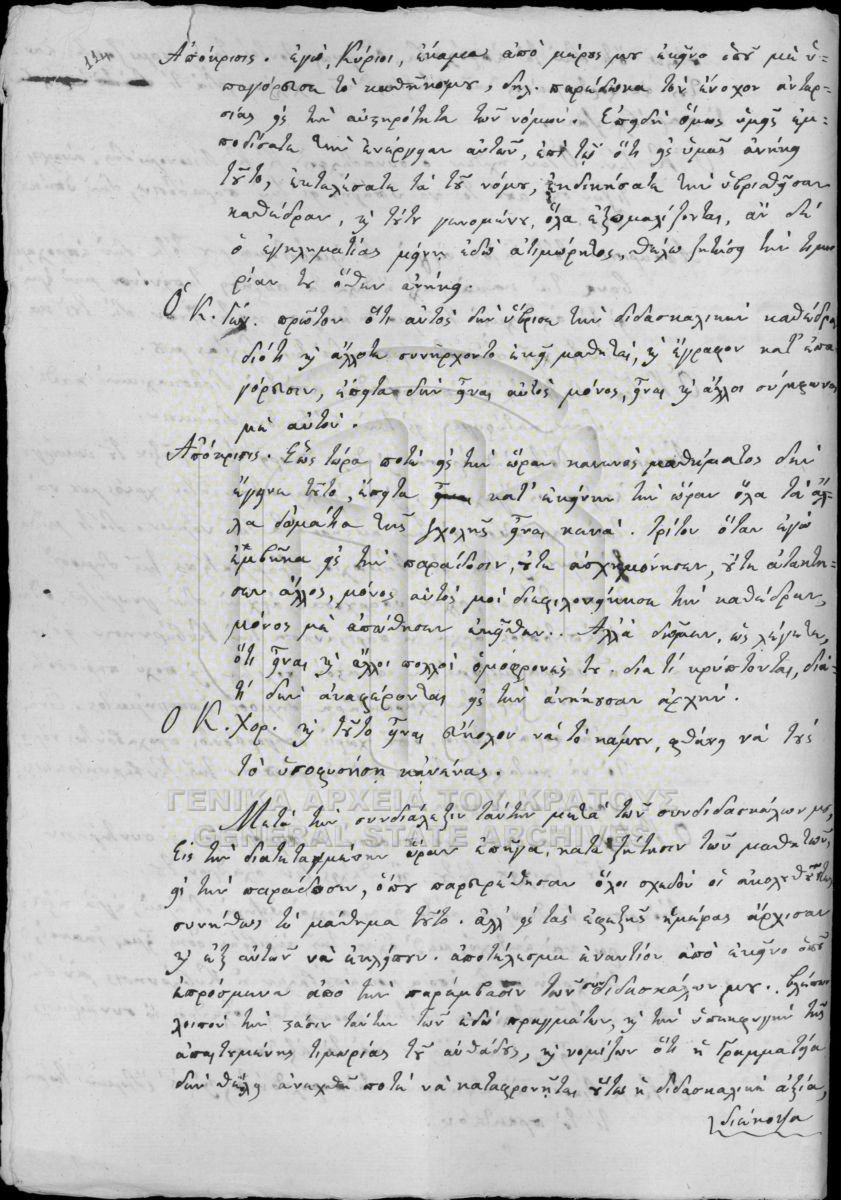 Ἀπόκρισις. ἐγώ, Κύριοι, ἔκαμα ἀπὸ μέρος μου ἐκεῖνο ὁποῦ μὲ ὑ-
παγόρευσε τὸ καθῆκόν μου, δηλ. παρέδωκα τὸν ἔνοχον ἀνταρ-
σίας εἰς τὴν αὐστηρότητα τῶν νόμων. Ἐπειδὴ ὅμως ὑμεῖς ἐμ-
ποδίσατε τὴν ἐνέργειαν αὐτῶν, ἐπὶ τῷ ὅτι εἰς ὑμᾶς ἀνήκει
τοῦτο, ἐκτελέσατε τὰ τοῦ νόμου, ἐκδικήσατε τὴν ὑβρισθεῖσαν
καθέδραν, καὶ τούτου γενομένου, ὅλα ἐξομαλίζονται, ἂν δὲ
ὁ ἐγκληματίας μένῃ ἐδῶ ἀτιμώρητος, θέλω ζητήσῃ τὴν τιμω
ρίαν του ὅθεν ἀνήκει.
Ὁ Κ. πρῶτον ὅτι αὐτὸς δὲν ὕβρισε τὴν διδασκαλικὴν καθέδραν
διότι καὶ ἄλλοτε συνήρχοντο ἐκεῖ μαθηταί, καὶ ἔγραφον κατ' ὑπα
γόρευσιν, ἔπειτα δὲν εἶναι αὐτὸς μόνος, εἶναι καὶ ἄλλοι σύμφωνοι
μὲ αὐτόν.
Ἀπόκρισις. Ἕως τώρα ποτὲ εἰς τὴν ὥραν κανενὸς μαθήματος δὲν
ἔγεινε τοῦτο, ἔπειτα κατ' ἐκείνην τὴν ὥραν ὅλα τὰ ἄλ-
λα δωμάτια τῆς σχολῆς εἶναι κενά. τρίτον ὅταν ἐγὼ
ἐμβῆκα εἰς τὴν παράδοσιν, οὔτε ἀσχημόνησεν, οὔτε ἀτάκτη-
σεν ἄλλος, μόνος αὐτὸς μοὶ διεφιλονείκησε τὴν καθέδραν,
μόνος μὲ ἀπείθησεν ἐκεῖθεν. Ἀλλὰ δόσωμεν, ὡς λέγετε,
ὅτι εἶναι καὶ ἄλλοι πολλοὶ ὁμόφρονές του. διατί κρύπτονται, δια-
τί δὲν ἀναφέρονται εἰς τὴν ἀνήκουσαν ἀρχήν.
Ὁ Κ. Χορ. καὶ τοῦτο εἶναι εὔκολον νὰ τὸ κάμουν, φθάνει νὰ τοὺς
τὸ ὑποφυσήσῃ κανένας.
Μετὰ τὴν συνδιάλεξιν ταύτην μετὰ τῶν συνδιδασκάλων μου,
Εἰς τὴν διατεταγμένην ὥραν ἐπῆγα, κατὰ ζήτησιν τῶν μαθητῶν,
εἰς τὴν παράδοσιν, ὅπου παρευρέθησαν ὅλοι σχεδὸν οἱ ἀκολουθοῦντες
συνήθως τὸ μάθημα τοῦτο. ἀλλ' εἰς τὰς ἐφεξῆς ἡμέρας ἄρχισαν
καὶ ἐξ αὐτῶν νὰ ἐκλείπουν. ἀποτέλεσμα ἐναντίον ἀπὸ ἐκεῖνο ὁποῦ
ἐπρόσμενα ἀπὸ τὴν παρέμβασιν τῶν συνδιδασκάλων μου. βλέπων
λοιπὸν τὴν στάσιν ταύτην τῶν ἐδῶ πραγμάτων, καὶ τὴν ὑπεκφυγὴν τῆς
ἀπαιτουμένης τιμωρίας τοῦ αὐθάδους, καὶ νομίζων ὅτι ἡ Γραμματεία
δὲν θέλει ἀνεχθῆ ποτὲ νὰ καταφρονῆται οὕτως ἡ διδασκαλικὴ ἀξία,
διέκοψα
ΓΕΝΙΚΑ ΑΡΧΕΙΑ ΤΟΥ ΚΡΑΤΟΥΣ
GENERAL STATE ARCHIVES